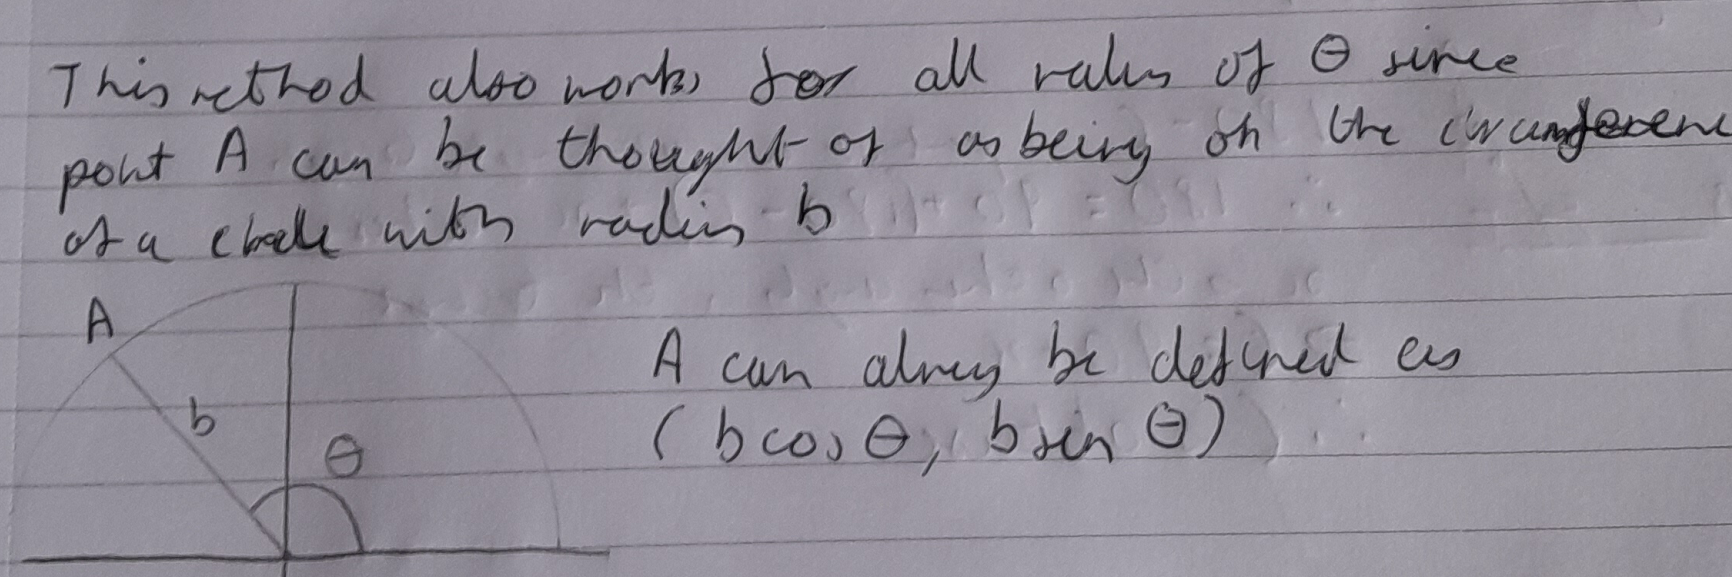 This method also works for all values of θ since
point A can be thought of as being on the circumference
of a circle with radius b
A
b
θ
A can always be defined as
(b cos θ, b sin θ)